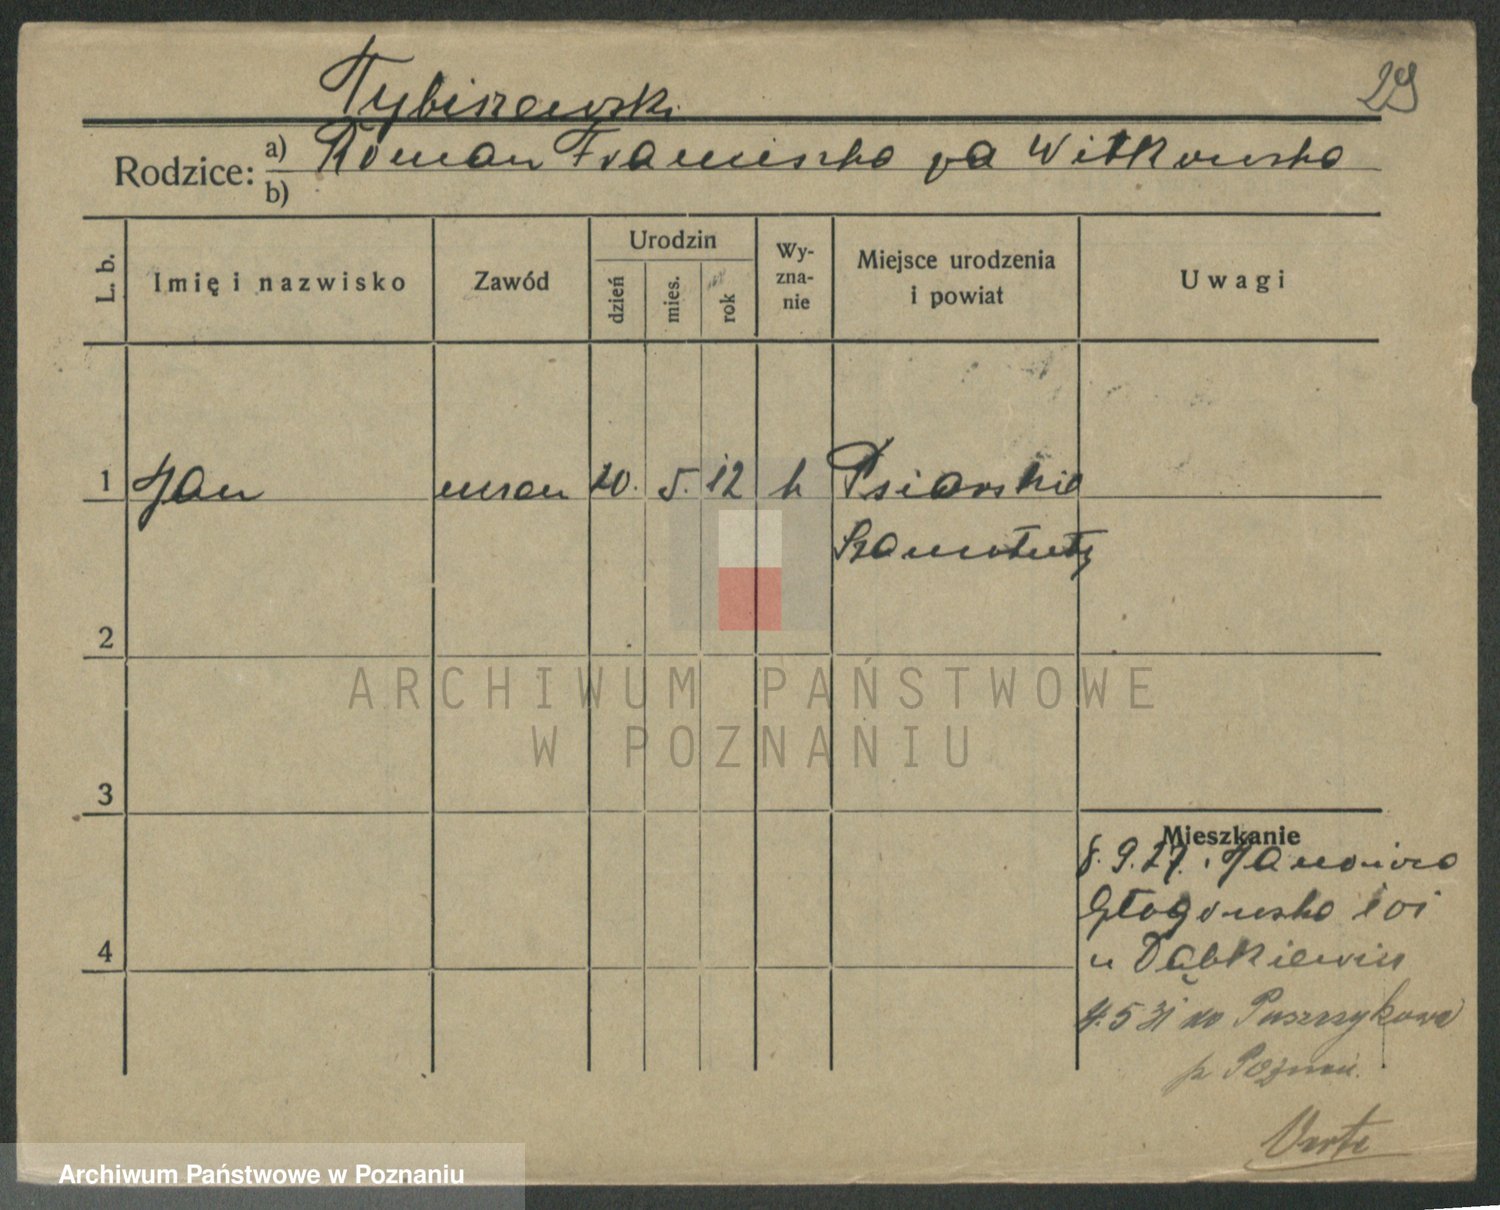 29
Tybiszewski
Rodzice: a) Roman Franciszka za Witkowska
b)
L. b.
Imię i nazwisko
Zawód
Urodzin
dzień
mies.
rok
Wy-
zna-
nie
Miejsce urodzenia
i powiat
Uwagi
1 Jan uczeń 20. 5. 12 k Psiarskie
Szamotuły
2
3
4
Mieszkanie
8. 9. 27.
Głogowska 101
u Dąbkiewicz
4. 5 31 do Puszczykowa
p Poznań.
Verte
ARCHIWUM PAŃSTWOWE
W POZNANIU
Archiwum Państwowe w Poznaniu